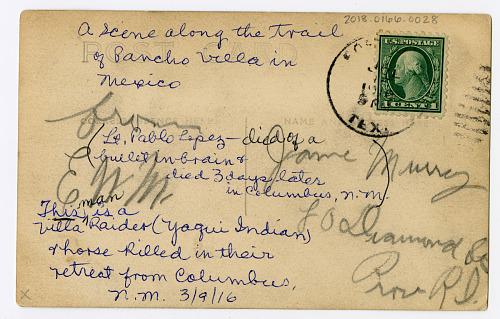 2018.0166.0028
A Scene along the Trail
of Pancho Villa in
Mexico
POST CARD
U.S. POSTAGE
1 CENT 1
TEX.
from
E.M.M.
Lt. Pablo Lopez – died of a
bullet in brain &
died 3 days later
in Columbus, N.M.
This man is a
Villa Raider (Yaqui Indian)
& horse killed in their
retreat from Columbus,
N.M. 3/9/16
NAME A
Jane Murry
Diamond
Prov R.I.